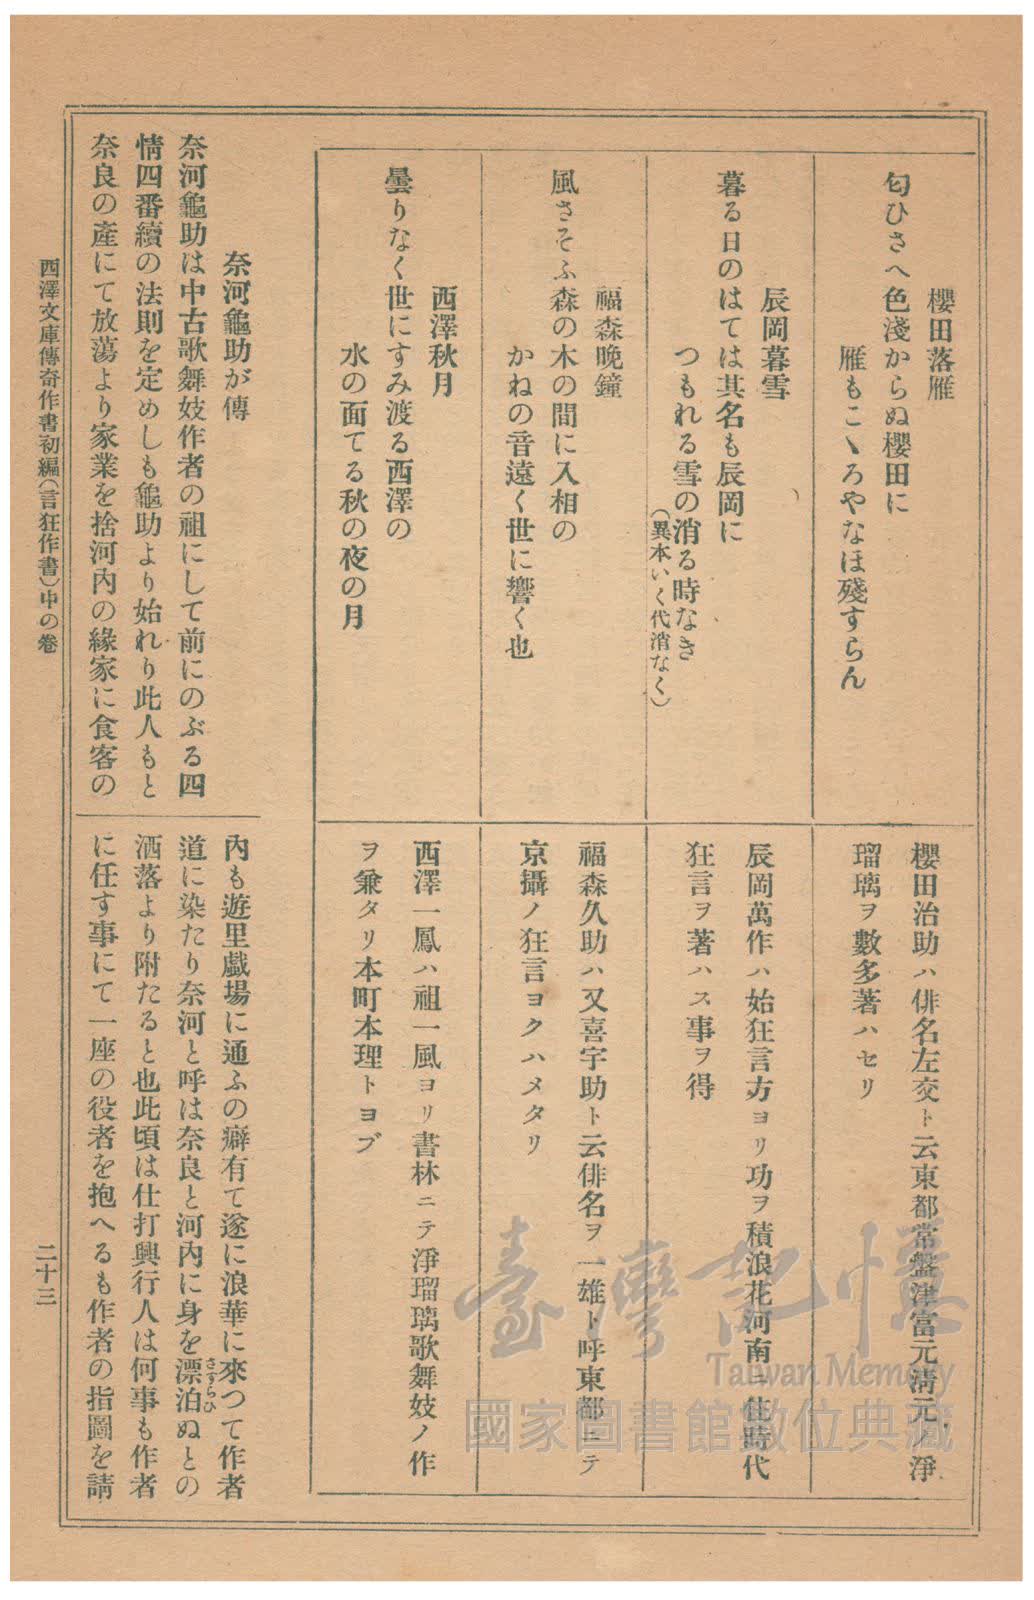 櫻田落雁
匂ひさへ色淺からぬ櫻田に
雁もこゝろやなほ殘すらん
櫻田治助ハ俳名左交ト云東都常盤津富元淸元ノ淨
瑠璃ヲ數多著ハセリ
辰岡暮雪
暮る日のはては其名も辰岡に
つもれる雪の消る時なき
(異本いく代消なく)
辰岡萬作ハ始狂言方ヨリ功ヲ積浪花河南ニ住時代
狂言ヲ著ハス事ヲ得
福森晩鐘
風さそふ森の木の間に入相の
かねの音遠く世に響く也
福森久助ハ又喜宇助ト云俳名ヲ一雄ト呼東都ニテ
京攝ノ狂言ヨクハメタリ
西澤秋月
曇りなく世にすみ渡る西澤の
水の面てる秋の夜の月
西澤一鳳ハ祖一風ヨリ書林ニテ淨瑠璃歌舞妓ノ作
ヲ兼タリ本町本理トヨブ
奈河龜助が傳
奈河龜助は中古歌舞妓作者の祖にして前にのぶる四
情四番續の法則を定めしも龜助より始れり此人もと
奈良の產にて放蕩より家業を捨河內の緣家に食客の
內も遊里戲場に通ふの癖有て遂に浪華に來つて作者
道に染たり奈河と呼は奈良と河內に身を漂泊ぬとの
さすらひ
洒落より附たると也此頃は仕打興行人は何事も作者
に任す事にて一座の役者を抱へるも作者の指圖を請
西澤文庫傳奇作書初編(言狂作書)中の卷
二十三
臺灣記憶
Taiwan Memory
國家圖書館數位典藏